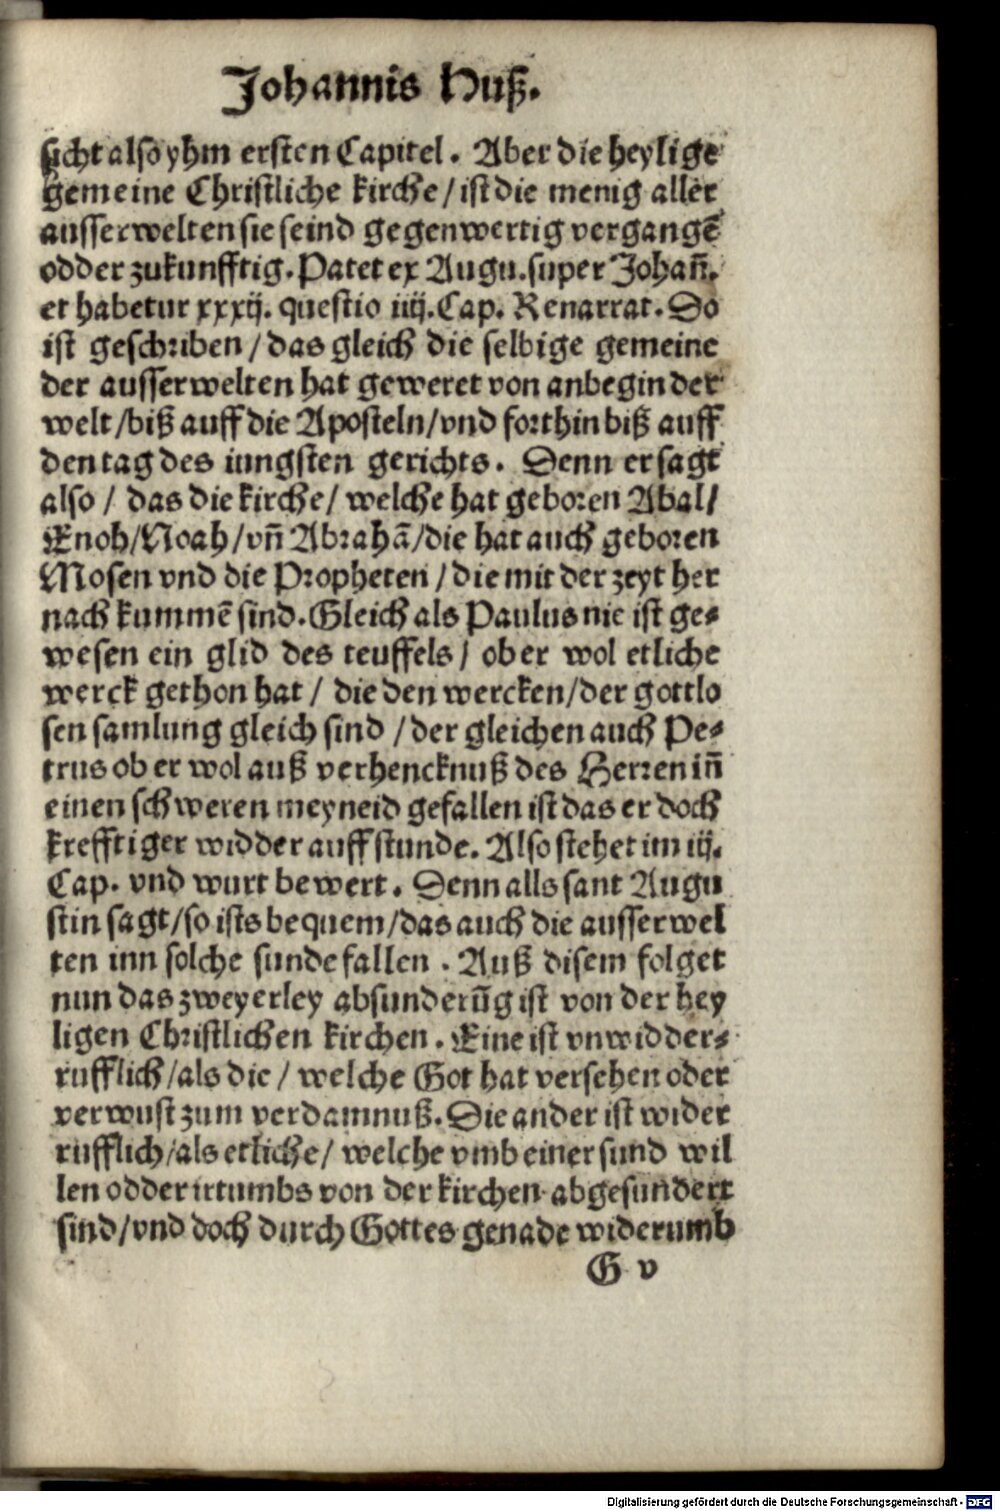 Johannis Huß.
sicht also yhm ersten Capitel. Aber die heylige
gemeine Christliche kirche/ ist die menig aller
ausserwelten sie seind gegenwertig vergangẽ
odder zukunfftig. Patet ex Augu. super Johañ.
et habetur xxxij. questio iiij. Cap. Renarrat. So
ist geschriben/ das gleich die selbige gemeine
der ausserwelten hat geweret von anbegin der
welt/ biß auff die Aposteln/ vnd forthin biß auff
den tag des iungsten gerichts. Denn er sagt
also/ das die kirche/ welche hat geboren Abal/
Enoh/ Noah/ vñ Abrahã/ die hat auch geboren
Mosen vnd die Propheten/ die mit der zeyt her
nach kummẽ sind. Gleich als Paulus nie ist ge-
wesen ein glid des teuffels/ ob er wol etliche
werck gethon hat/ die den wercken/ der gottlo
sen samlung gleich sind/ der gleichen auch Pe-
trus ob er wol auß verhencknuß des Herren iñ
einen schweren meyneid gefallen ist das er doch
krefftiger widder auff stunde. Also stehet im iij.
Cap. vnd wurt bewert. Denn alls sant Augu
stin sagt/ so ists bequem/ das auch die ausserwel
ten inn solche sunde fallen. Auß disem folget
nun das zweyerley absunderũg ist von der hey
ligen Christlichen kirchen. Eine ist vnwidder-
rufflich/ als die/ welche Got hat versehen oder
verwust zum verdamnuß. Die ander ist wider
rufflich/ als etliche/ welche vmb einer sund wil
len odder irtumbs von der kirchen abgesundert
sind/ vnd doch durch Gottes genade widerumb
G v
Digitalisierung gefördert durch die Deutsche Forschungsgemeinschaft - DFG